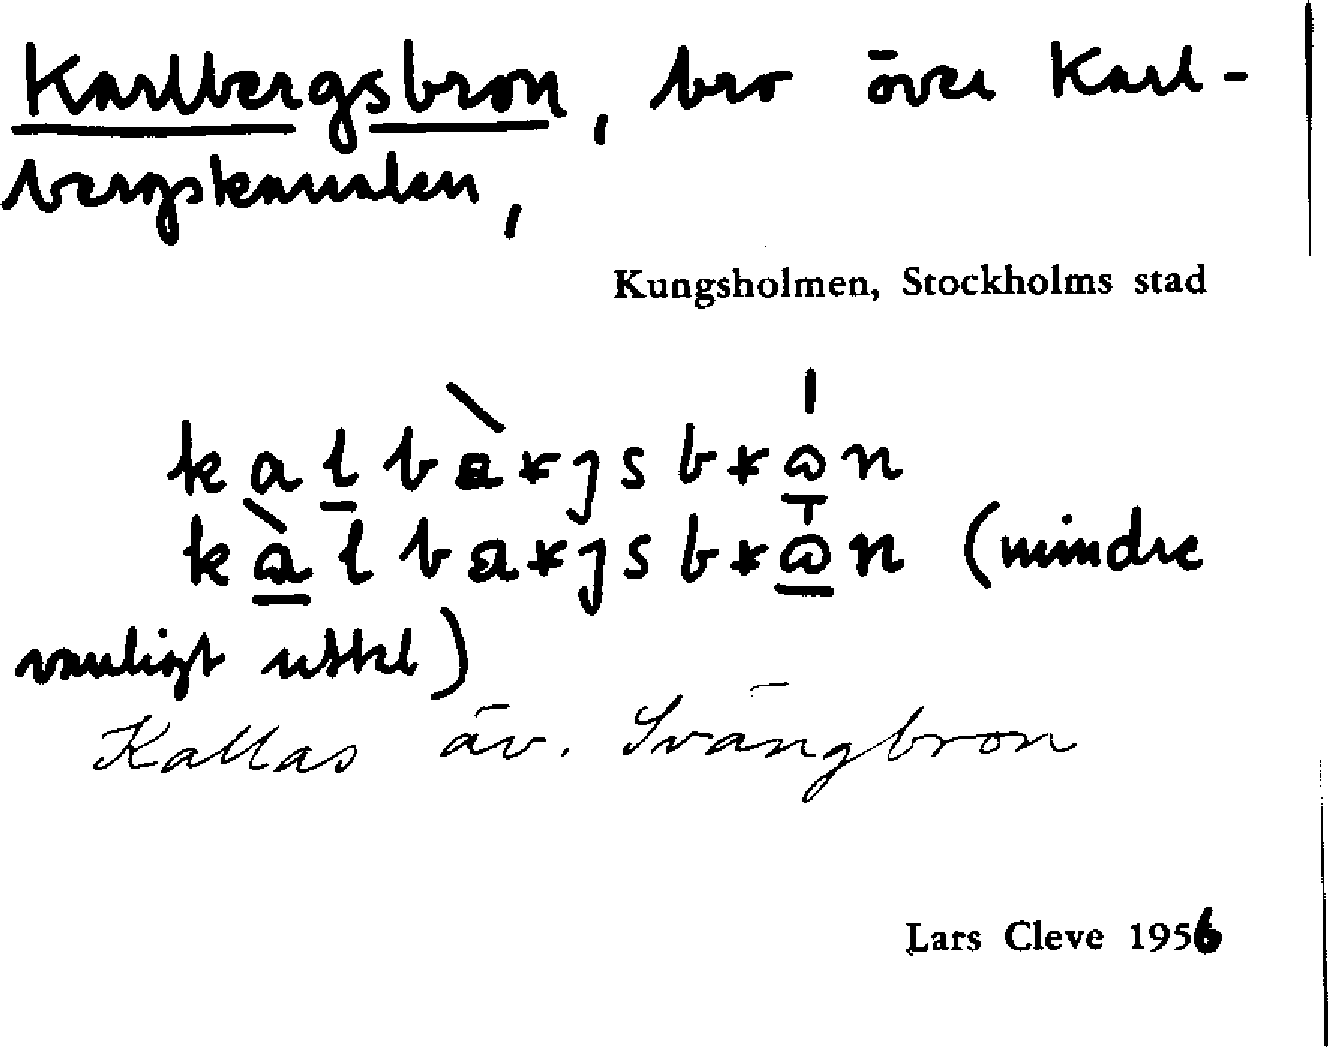 Karlbergsbron, bro över Karl-
bergskanalen,
Kungsholmen, Stockholms stad
(mindre
vanligt uttal)
Kallas äv. Svängbron
Lars Cleve 1956